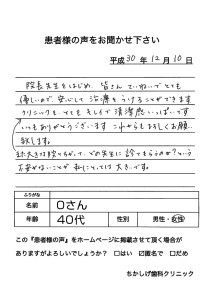 患者様の声をお聞かせ下さい
平成 30 年 12 月 10 日
院長先生をはじめ、皆さんていねいでとても
優しいので、安心して治療をうけることができます。
クリニックも、とても、そして清潔感いっぱいです。
いつもありがとうございます。これからもよろしくお願い
致します。
は、どの先生に診てもらうのか？という
不安がないことが私にとっては大きいです。
ふりがな
名前 Oさん
年齢 40代 性別 男性・女性
この『患者様の声』をホームページに掲載させて頂く場合が
ありますがよろしいでしょうか？ □はい □匿名で □だめ
ちかしげ歯科クリニック